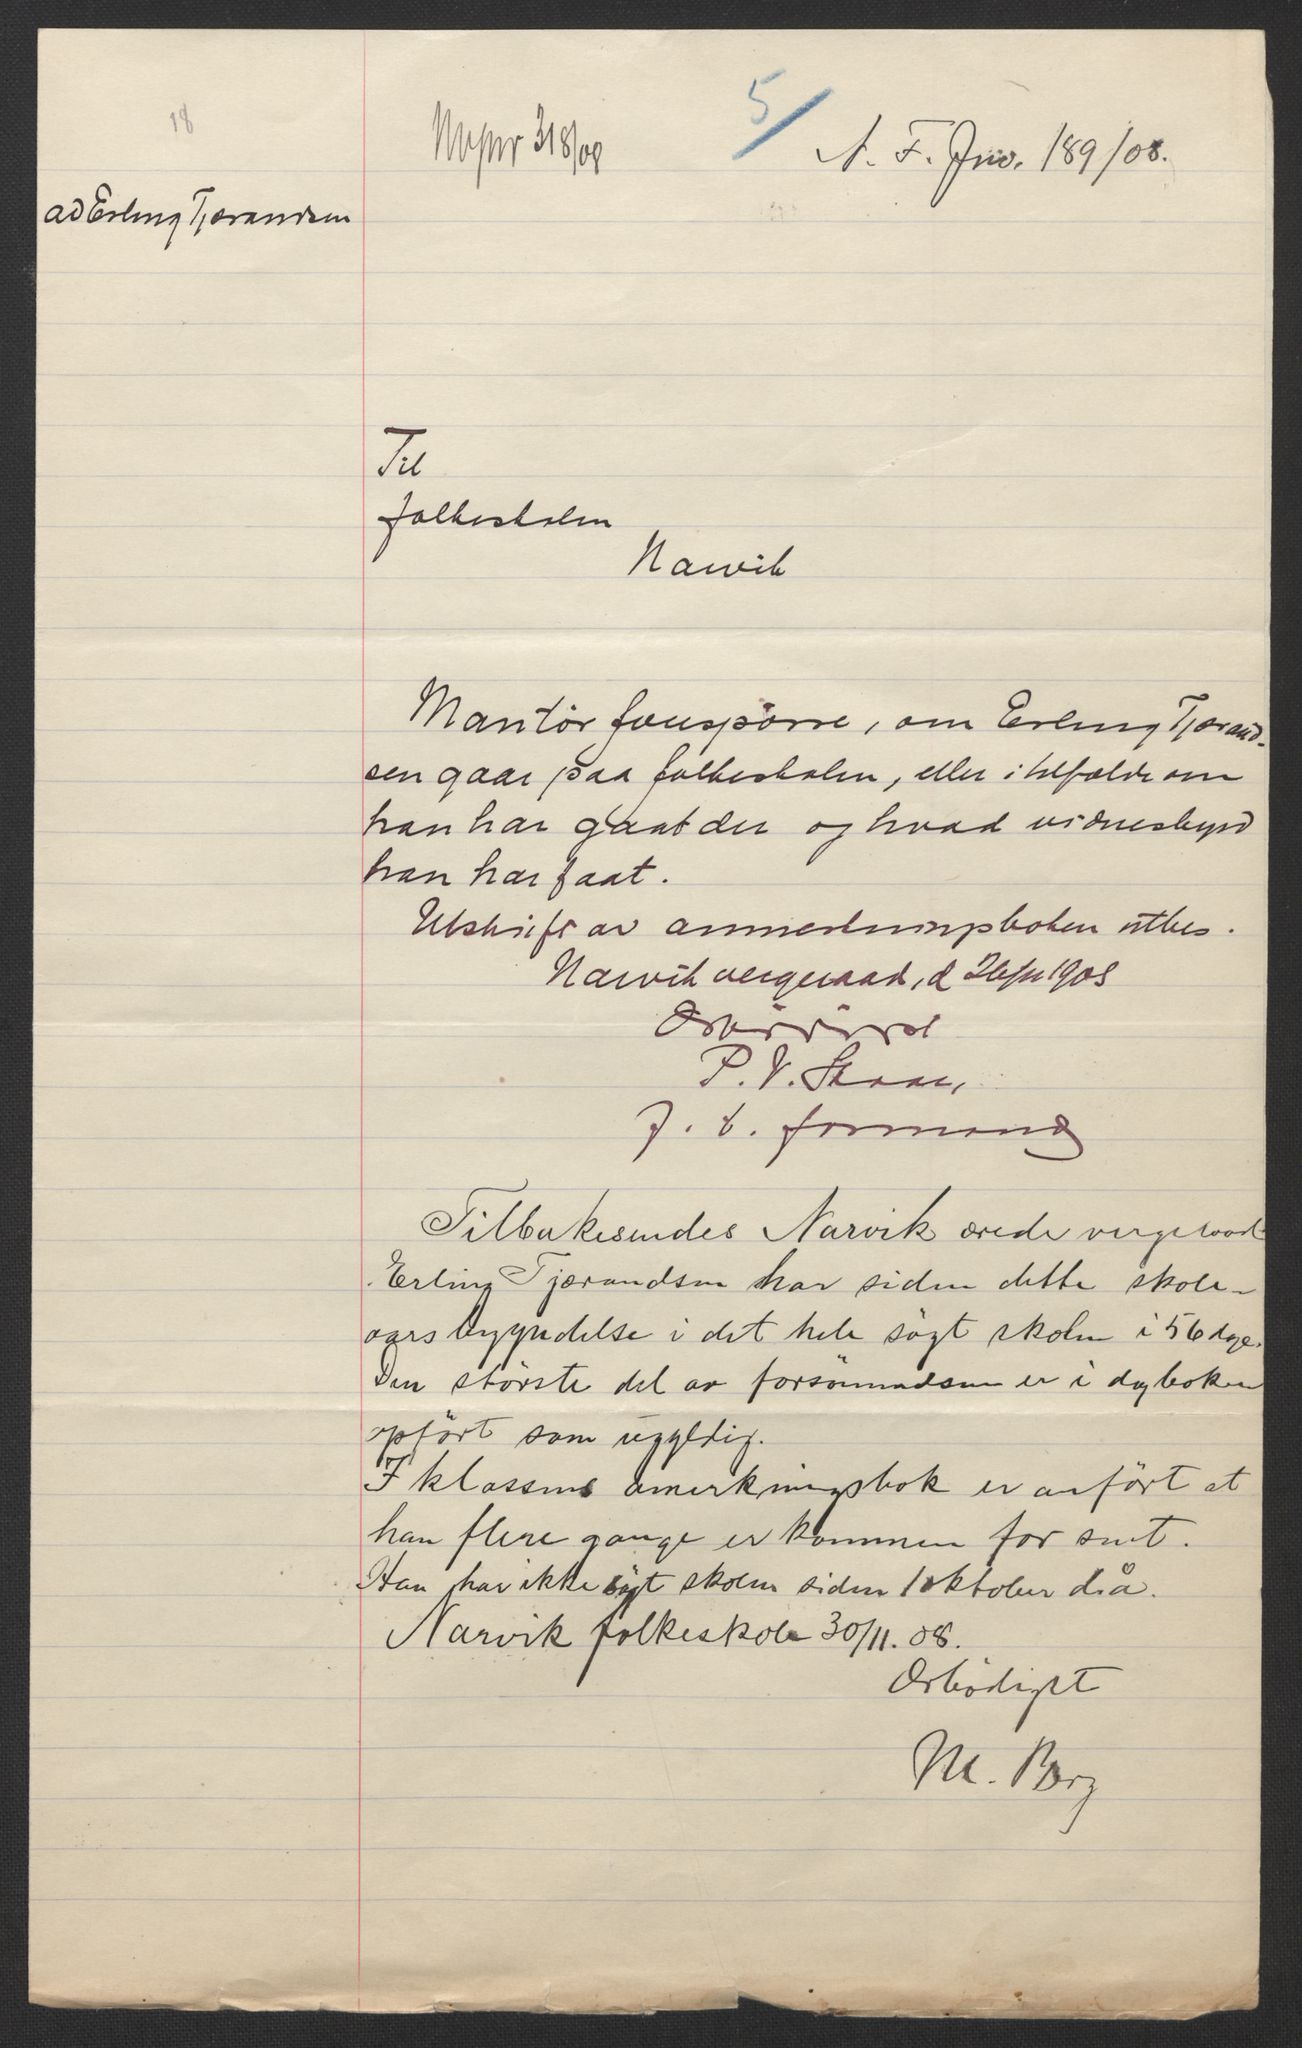 18
318/08
5/
N. F. Jno. 189/08.
ad Erling Tjærandsen
Til
folkeskolen
Narvik
Man tør forespørre, om Erling Tjærand-
sen gaar paa folkeskolen, eller i tilfælde om
han har gaat der og hvad vidnesbyrd
han har faat.
Utskrift av anmerkningsboken utbes.
Narvik vergeraad, d 26/11 1908
Ærbødigst
P. V.
f. t. formand
Tilbakesendes Narvik ærede vergeraad
Erling Tjærandsen har siden dette skole-
aars begyndelse i det hele søgt skolen i 56 dage.
Den største del av forsømmelsen er i dagboken
opført som ugyldig.
I klassens anmerkningsbok er anført at
han flere gange er kommen for sent.
Han har ikke søgt skolen siden 1 oktober d. å.
Narvik folkeskole 30/11. 08.
Ærbødigst
M. Berg